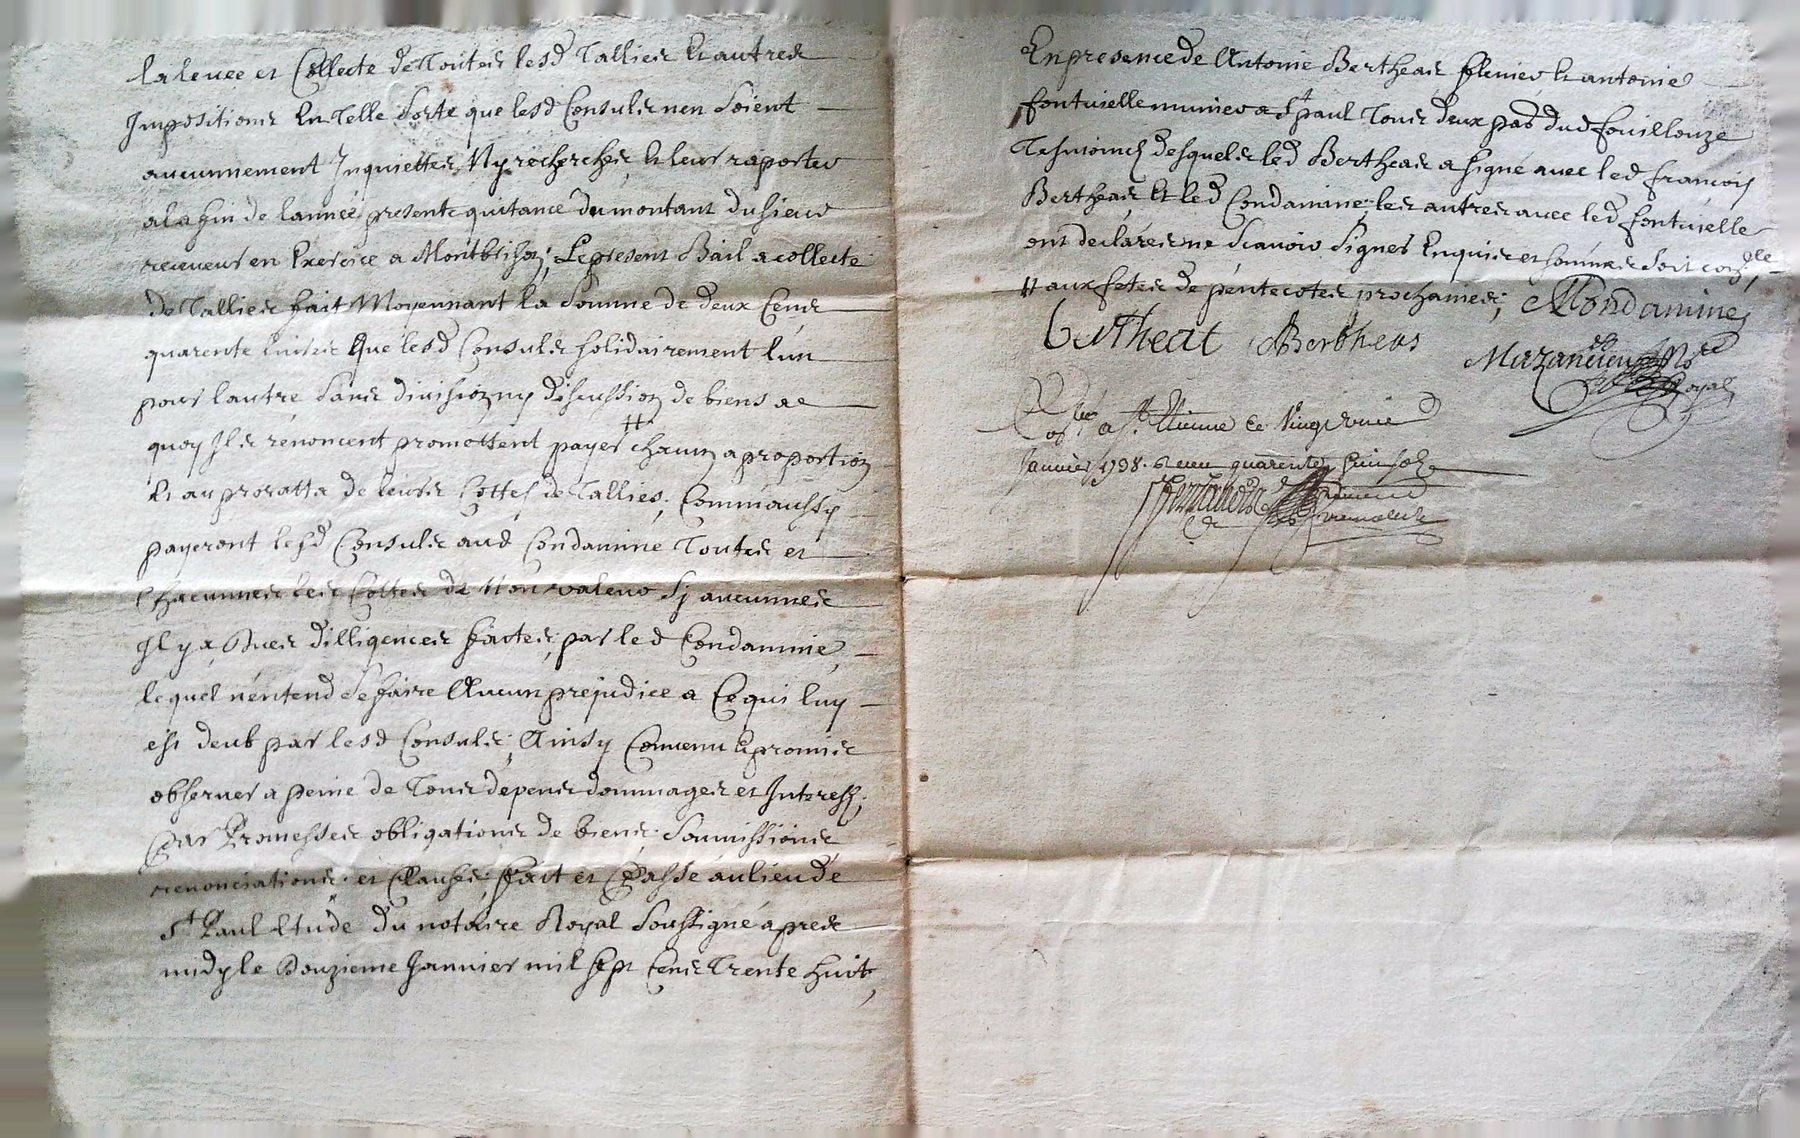 la levee et Collecte de Toutes lesd Tallies Et autres
Impositions En Telle Sorte que lesd Consuls nen Soient
aucunnement Inquiettes Ny recherches, Et leur raporter
a la fin de lannée presente quitance du montant du sieur
receveur en Exercice a Montbrison; Le present Bail a collecte
de Tallies fait Moyennant la Somme de deux Cens
quarente Livres Que lesd Consuls solidairement lun
pour lautre Sans division ny discussion de biens a
quoy Ils renoncent promettent payer # chacun a proportion
Et au proratta de leurs Cottes de Tallies, Comm'aussy
payeront lesd Consuls aud Condamine Toutes et
chacunnes les Cottes de Non valeur Sy aucunnes
Il y a, Dues dilligences faites, par led Condamine,
lequel n'entend Se faire Aucun prejudice a Ce qui luy
est deub par lesd Consuls; Ainsy Convenu Et promis
observer a peine de Tous depens dommages et Interests;
Par Promesses obligations de biens Soumissions
renonciations et Clauses, fait et Passé au lieu de
St Paul Etude du notaire Royal Soussigné apres
midy le Douzieme Janvier mil sept Cens Trente huit,
En presence de Antoine Bertheas et antoine
fontvielle munier a St paul Tous deux pars dud fouillouze
Tesmoins desquels led Bertheas a signé avec led françois
Bertheas Et led Condamine, les autres avec led fontvielle
ont declarés ne Scavoir Signer Enquis et sommés soit conlle
# aux fetes de pentecotes prochaines; Condamine
Bertheas Bertheas
Mazancieu No re
Royal
a St Etienne ce Vingt
Janvier 1738. Receu quarente huit sols